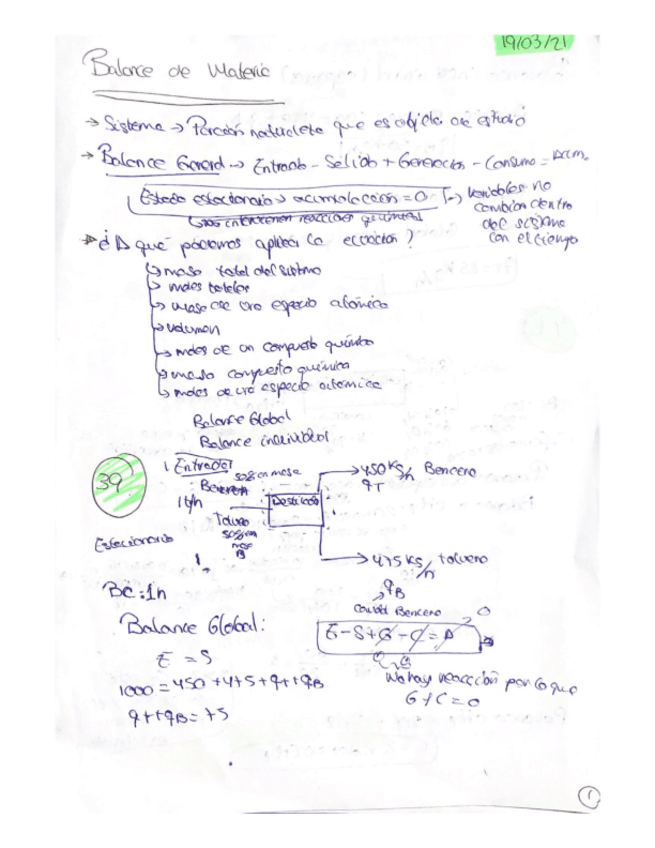 19/03/21
Balance de Materia
→ Sistema → Porción naturaleza que es objeto de estudio
→ Balance General → Entrada - Salida + Generación - Consumo = Acum.
Estado estacionario → acumulación = 0 → variables no
cambian dentro
del sistema
con el tiempo
↳ no intervienen reacciones químicas
¿A que podemos aplicar la ecuación?
↳ masa total del sistema
↳ moles totales
↳ masa de una especie atómica
↳ volumen
↳ moles de un compuesto químico
↳ masa compuesto químico
↳ moles de una especie atómica
Balance Global
Balance individual
39
Entrada
50% en masa
Benceno
1t/h
Tolueno
50% en
masa
Estacionario
→ 450 Kg/h Benceno
qT
→ 475 Kg/h tolueno
qB
Benceno
BC: 1h
Balance Global:
E - S + G - C = A
0
E = S
1000 = 450 + 475 + qT + qB
qT + qB = 75
No hay reacción por lo que
G y C = 0
1